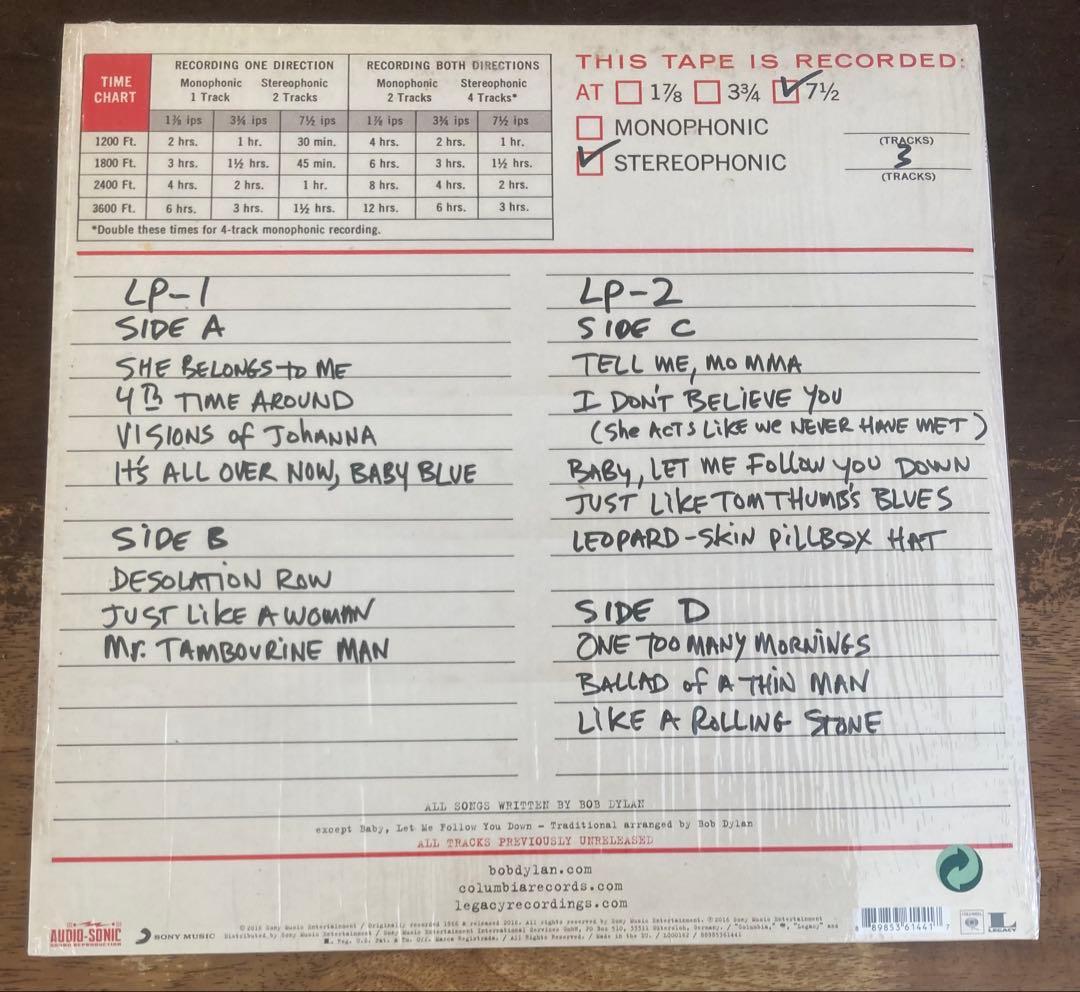 TIME CHART
RECORDING ONE DIRECTION RECORDING BOTH DIRECTIONS
Monophonic Stereophonic Monophonic Stereophonic
1 Track 2 Tracks 2 Tracks 4 Tracks*
1⅞ ips 3¾ ips 7½ ips 1⅞ ips 3¾ ips 7½ ips
1200 Ft. 2 hrs. 1 hr. 30 min. 4 hrs. 2 hrs. 1 hr.
1800 Ft. 3 hrs. 1½ hrs. 45 min. 6 hrs. 3 hrs. 1½ hrs.
2400 Ft. 4 hrs. 2 hrs. 1 hr. 8 hrs. 4 hrs. 2 hrs.
3600 Ft. 6 hrs. 3 hrs. 1½ hrs. 12 hrs. 6 hrs. 3 hrs.
*Double these times for 4-track monophonic recording.
THIS TAPE IS RECORDED:
AT 1⅞ 3¾ 7½
MONOPHONIC
(TRACKS)
STEREOPHONIC 3
(TRACKS)
LP-1
SIDE A
SHE BELONGS to ME
4TH TIME AROUND
VISIONS of JOHANNA
It's ALL OVER NOW, BABY BLUE
SIDE B
DESOLATION ROW
JUST LIKE A WOMAN
Mr. TAMBOURINE MAN
LP-2
SIDE C
TELL ME, MOMMA
I DON'T BELIEVE YOU
(She ACTS LIKE We NEVER HAVE MET)
BABY, LET ME Follow you DOWN
JUST LIKE TOM THUMB'S BLUES
LEOPARD-SKIN PILLBOX HAT
SIDE D
ONE TOO MANY MORNINGS
BALLAD of A THIN MAN
LIKE A ROLLING STONE
ALL SONGS WRITTEN BY BOB DYLAN
except Baby, Let Me Follow You Down - Traditional arranged by Bob Dylan
ALL TRACKS PREVIOUSLY UNRELEASED
bobdylan.com
columbiarecords.com
legacyrecordings.com
AUDIO-SONIC
SOUND REPRODUCTION
SONY MUSIC
© 2016 Sony Music Entertainment / Originally recorded 1966 & released 2016. All rights reserved by Sony Music Entertainment. ℗ 2016 Sony Music Entertainment
Distributed by Sony Music Entertainment / Sony Music Entertainment International Services GmbH, PO Box 510, 33311 Gütersloh, Germany. / "Columbia," "Legacy" and
Reg. U.S. Pat. & Tm. Off. Marca Registrada. / All Rights Reserved. / Made in the EU. / LC00162 / 88985361441
8 89853 61441 7
COLUMBIA
LEGACY